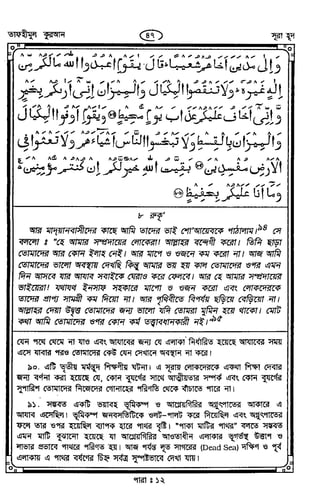 তাফহীমুল কুরআন
৪৭
সূরা হূদ
وَإِلَىٰ مَدْيَنَ أَخَاهُمْ شُعَيْبًا ۚ قَالَ يٰقَوْمِ اعْبُدُوا اللَّهَ مَا لَكُمْ مِّنْ
إِلٰهٍ غَيْرُهُ ۖ وَلَا تَنْقُصُوا الْمِكْيَالَ وَالْمِيزَانَ إِنِّي أَرٰىكُمْ بِخَيْرٍ
وَّإِنِّي أَخَافُ عَلَيْكُمْ عَذَابَ يَوْمٍ مُّحِيطٍ ۝ وَيٰقَوْمِ أَوْفُوا الْمِكْيَالَ
وَالْمِيزَانَ بِالْقِسْطِ وَلَا تَبْخَسُوا النَّاسَ أَشْيَاءَهُمْ وَلَا تَعْثَوْا فِي
الْأَرْضِ مُفْسِدِينَ ۝ بَقِيَّتُ اللَّهِ خَيْرٌ لَّكُمْ إِنْ كُنْتُمْ مُّؤْمِنِينَ
وَمَا أَنَا عَلَيْكُمْ بِحَفِيظٍ ۝
৮ রুকূ'
আর মাদ্‌য়ানবাসীদের কাছে আমি তাদের ভাই শো'আয়েবকে পাঠালাম।৯৪ সে
বললো ঃ "হে আমার সম্প্রদায়ের লোকেরা! আল্লাহর বন্দেগী করো। তিনি ছাড়া
তোমাদের আর কোন ইলাহ নেই। আর মাপে ও ওজনে কম করো না। আজ আমি
তোমাদের ভালো অবস্থায় দেখছি কিন্তু আমার ভয় হয় কাল তোমাদের ওপর এমন
দিন আসবে যার আযাব সবাইকে ঘেরাও করে ফেলবে। আর হে আমার সম্প্রদায়ের
ভাইয়েরা! যথাযথ ইনসাফ সহকারে মাপো ও ওজন করো এবং লোকদেরকে
তাদের প্রাপ্য সামগ্রী কম দিয়ো না। আর পৃথিবীতে বিপর্যয় ছড়িয়ে বেড়িয়ো না।
আল্লাহর দেয়া উদ্বৃত্ত তোমাদের জন্য ভালো যদি তোমরা মুমিন হয়ে থাকো। মোট
কথা আমি তোমাদের ওপর কোন কর্ম তত্ত্বাবধানকারী নই।"৯৫
যেন পথে থেমে না যাও এবং আযাবের জন্য যে এলাকা নির্ধারিত হয়েছে আযাবের সময়
এসে যাবার পরও তোমাদের কেউ যেন সেখানে অবস্থান না করে।
৯০. এটি তৃতীয় মর্মন্তুদ শিক্ষণীয় ঘটনা। এ সূরায় লোকদেরকে একথা শিক্ষা দেবার
জন্য বর্ণনা করা হয়েছে যে, কোন বুযর্গের সাথে আত্মীয়তার সম্পর্ক এবং কোন বুযর্গের
সুপারিশ তোমাদের নিজেদের গোনাহের পরিণতি থেকে বাঁচাতে পারে না।
৯১. সম্ভবত একটি ভয়াবহ ভূমিকম্প ও আগ্নেয়গিরির অগ্ন্যুৎপাতের আকারে এ
আযাব এসেছিল। ভূমিকম্প জনবসতিটিকে ওলট-পালট করে দিয়েছিল এবং অগ্ন্যুৎপাতের
ফলে তার ওপর হয়েছিল ব্যাপক হারে পাথর বৃষ্টি। "পাকা মাটির পাথর" বলতে সম্ভবত
এমন মাটি বুঝানো হয়েছে যা আগ্নেয়গিরির আওতাধীন এলাকার ভূগর্ভস্থ উত্তাপ ও
লাভার প্রভাবে পাথরে পরিণত হয়। আজ পর্যন্ত লূত সাগরের (Dead Sea) দক্ষিণ ও পূর্ব
এলাকায় এ পাথর বর্ষণের চিহ্ন সর্বত্র সুস্পষ্টভাবে দেখা যায়।
পারা ঃ ১২